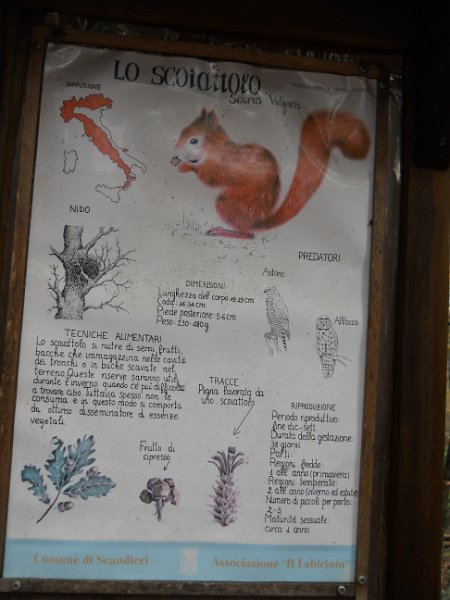 LO SCOIATTOLO
Sciurus Vulgaris
DIFFUSIONE
NIDO
PREDATORI
Astore
Allocco
DIMENSIONI
Lunghezza del corpo:
Coda:
Piede posteriore: 5-6 cm
Peso: 230-480 g
TECNICHE ALIMENTARI
Lo scoiattolo si nutre di semi, frutti,
bacche che immagazzina nelle cavità
dei tronchi o in buche scavate nel
terreno. Queste riserve saranno utili
durante l'inverno quando c'è più difficoltà
a trovare cibo. Tuttavia spesso non le
consuma e in questo modo si comporta
da ottimo disseminatore di essenze
vegetali.
TRACCE
Pigna lavorata da
uno scoiattolo
Frutto di
cipresso
RIPRODUZIONE
Periodo riproduttivo:
fine dic.-sett.
Durata della gestazione:
38 giorni
Parti:
Regioni fredde:
1 all'anno (primavera)
Regioni temperate:
2 all'anno (inverno ed estate)
Numero di piccoli per parto:
2-5
Maturità sessuale:
circa 1 anno
Comune di Scandicci
Associazione "Il Labirinto"